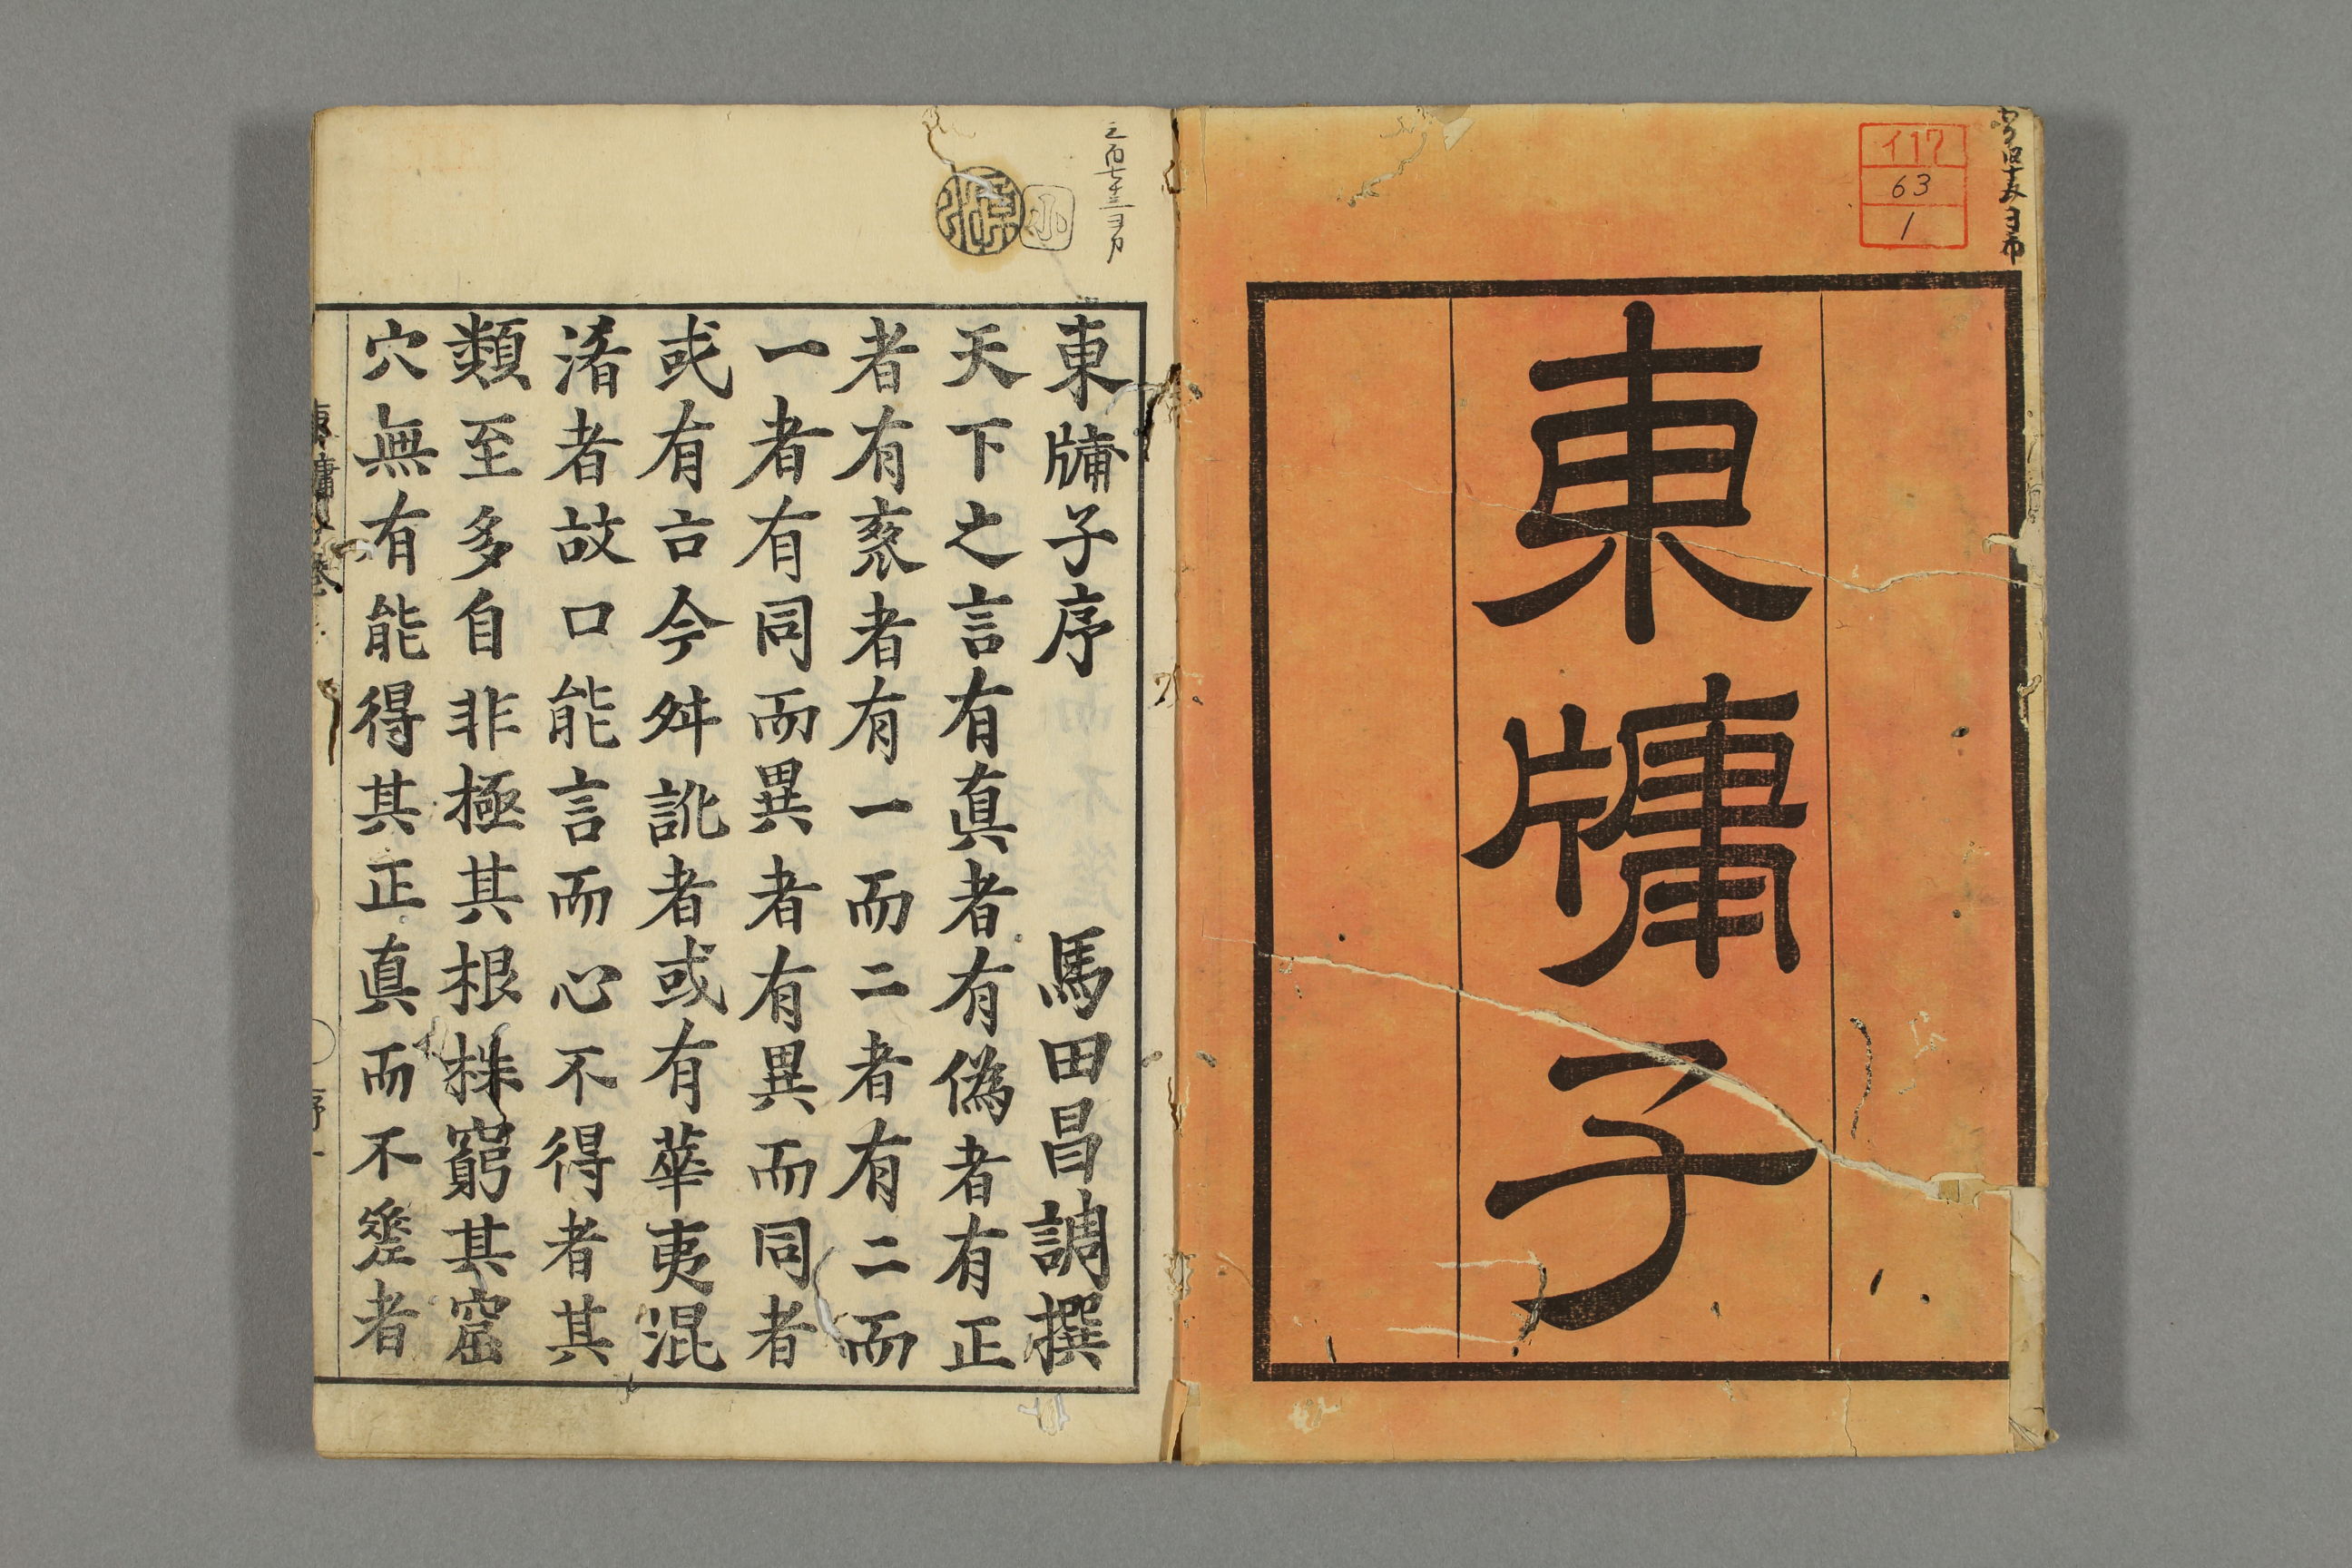 東牗子
イ17
63
1
東牗子序 馬田昌調撰
天下之言有真者有偽者有正
者有袤者有一而二者有二而
一者有同而異者有異而同者
或有古今舛訛者或有華夷混
淆者故口能言而心不得者其
類至多自非極其根株窮其窟
穴無有能得其正真而不差者
序一